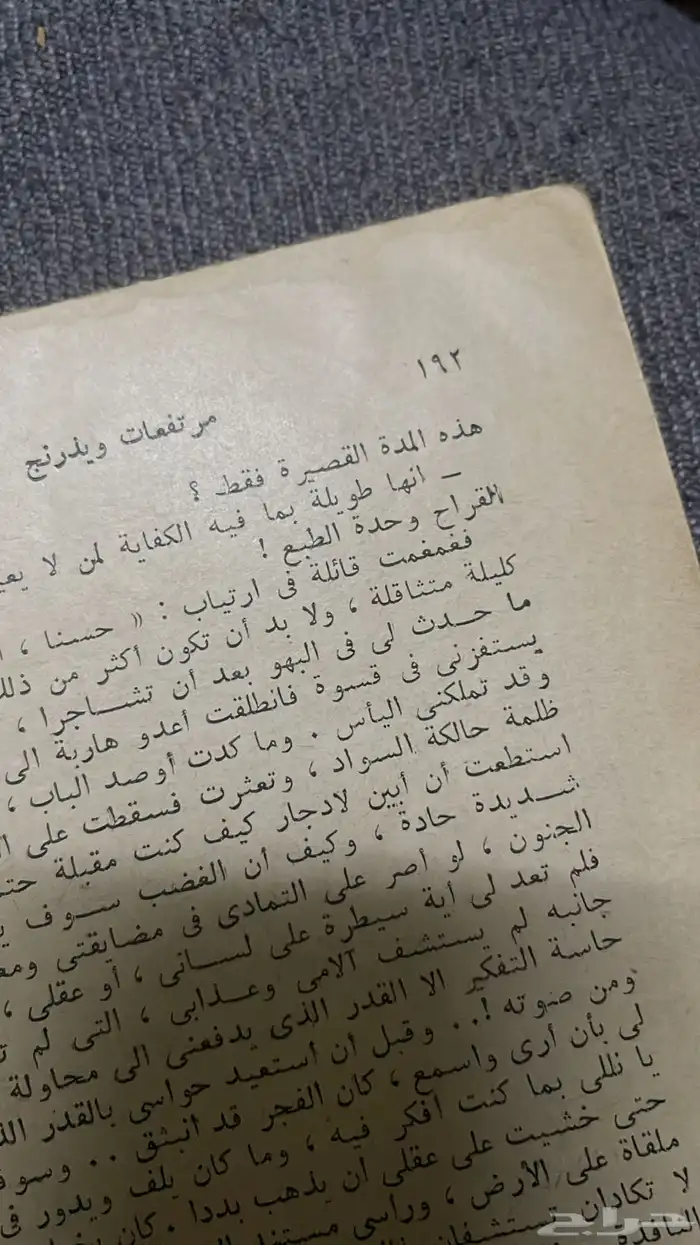 ١٩٢
مرتفعات ويذرنج
هذه المدة القصيرة فقط ؟
— انها طويلة بما فيه الكفاية لمن لا
القراح وحدة الطبع !
فغمغمت قائلة فى ارتياب : « حسنا ،
كليلة متثاقلة ، ولا بد أن تكون أكثر من ذلك
ما حــدث لى فى البهو بعد أن تشــاجرا ،
يستفزنى فى قسوة فانطلقت أعدو هاربة الى
وقد تملكنى اليأس . وما كدت أوصد الباب ،
ظلمة حالكة السواد ، وتعثرت فسقطت على
استطعت أن أبين لادجار كيف كنت مقبلة
شــديدة حادة ، وكيف أن الغضب ســوف
الجنون ، لو أصر على التمادى فى مضايقتى
فلم تعد لى أية سيطرة على لســانى ، أو عقلى ،
جانبه لم يستشف آلامى وعــذابى ، التى لم
حاسة التفكير الا القدر الذى يدفعنى الى محاولة
ومن صوته !.. وقبل ان أستعيد حواسى بالقدر
لى بأن أرى واسمع ، كان الفجر قد انبثق ..
يا نللى بما كنت افكر فيه ، وما كان يلف ويدور فى
حتى خشيت على عقلى ان يذهب بددا . كان
ملقاة على الأرض ، وراسى
لا تكادان تستشفان
النافذة
حراج